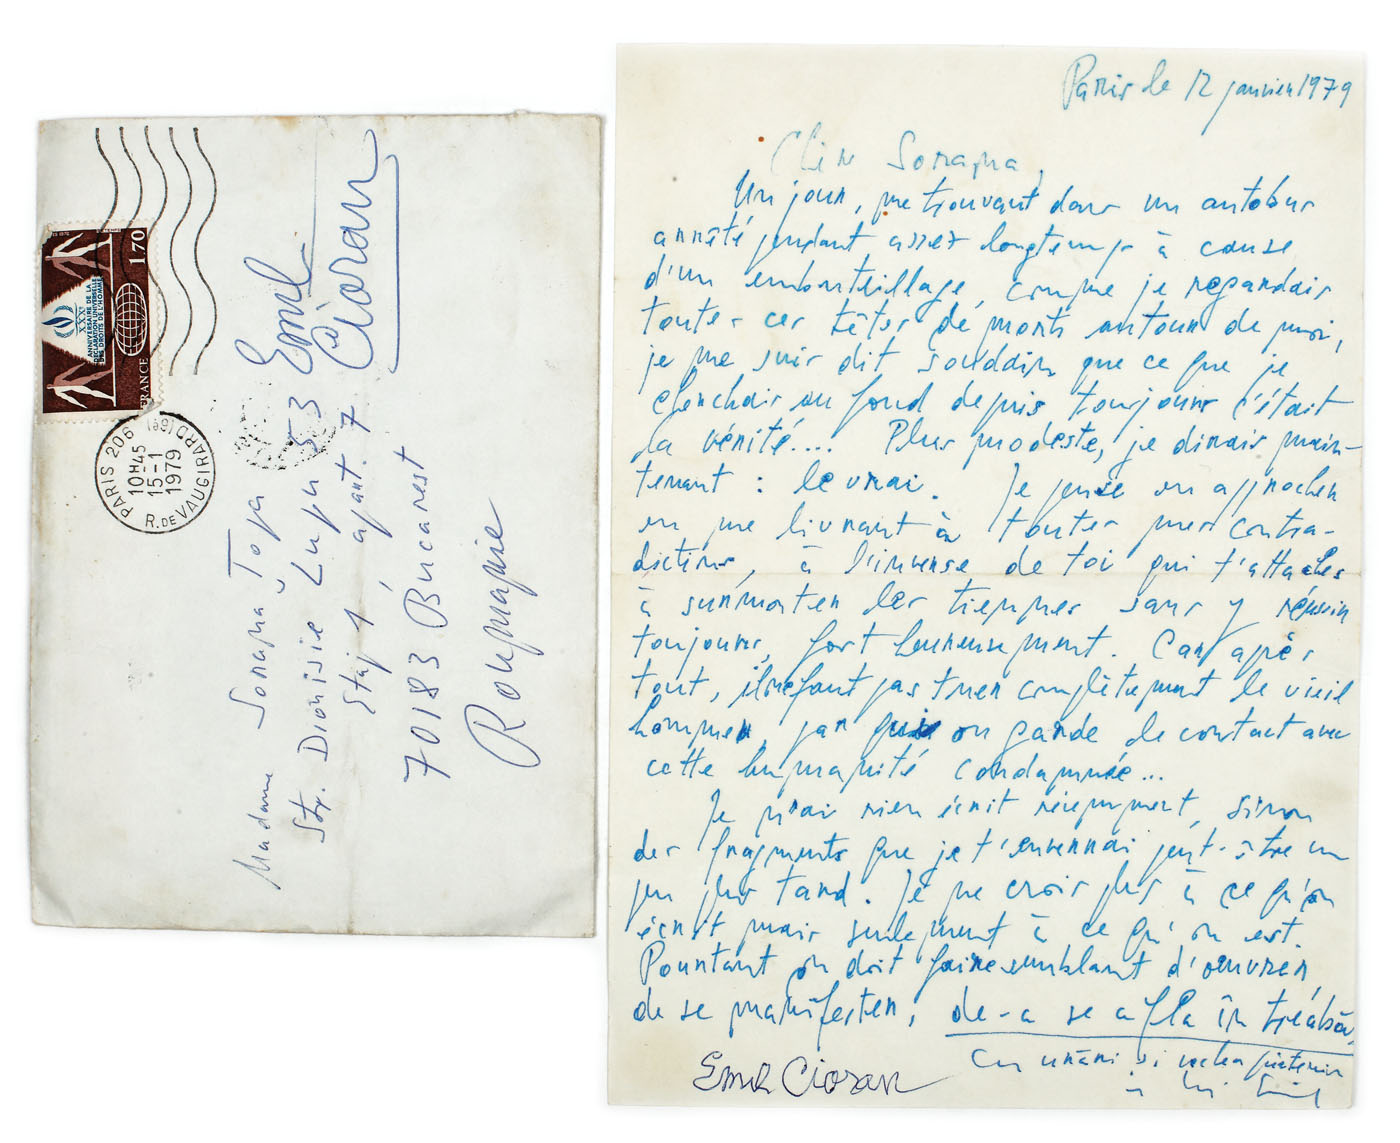 Emil
Cioran
Madame Sorana Țopa
Str. Dionisie Lupu 53
Etaj 1, apart. 7
70183 Bucarest
Roumanie
1.70
XXXe
ANNIVERSAIRE DE LA
DÉCLARATION UNIVERSELLE
DES DROITS DE L'HOMME
FRANCE
PARIS 206 (6e)
10H45
15-1
1979
R. DE VAUGIRARD
Paris le 12 janvier 1979
Chère Sorana,
Un jour, me trouvant dans un autobus
arrêté pendant assez longtemps à cause
d'un embouteillage, comme je regardais
toutes ces têtes de morts autour de moi,
je me suis dit soudain que ce que je
cherchais au fond depuis toujours c'était
la vérité.... Plus modeste, je dirais main-
tenant : le vrai. Je pense en approcher
en me livrant à toutes mes contra-
dictions, à l'inverse de toi qui t'attaches
à surmonter les tiennes sans y réussir
toujours, fort heureusement. Car après
tout, il ne faut pas tuer complètement le vieil
homme, par qui on garde le contact avec
cette humanité condamnée...
Je n'ai rien écrit récemment, sinon
des fragments que je t'enverrai peut-être un
peu plus tard. Je ne crois plus à ce qu'on
écrit mais seulement à ce qu'on est.
Pourtant on doit faire semblant d'œuvrer,
de se manifester, de-a se afla în treabă,
Cu urări și vechea prietenie
Emil
Emil Cioran